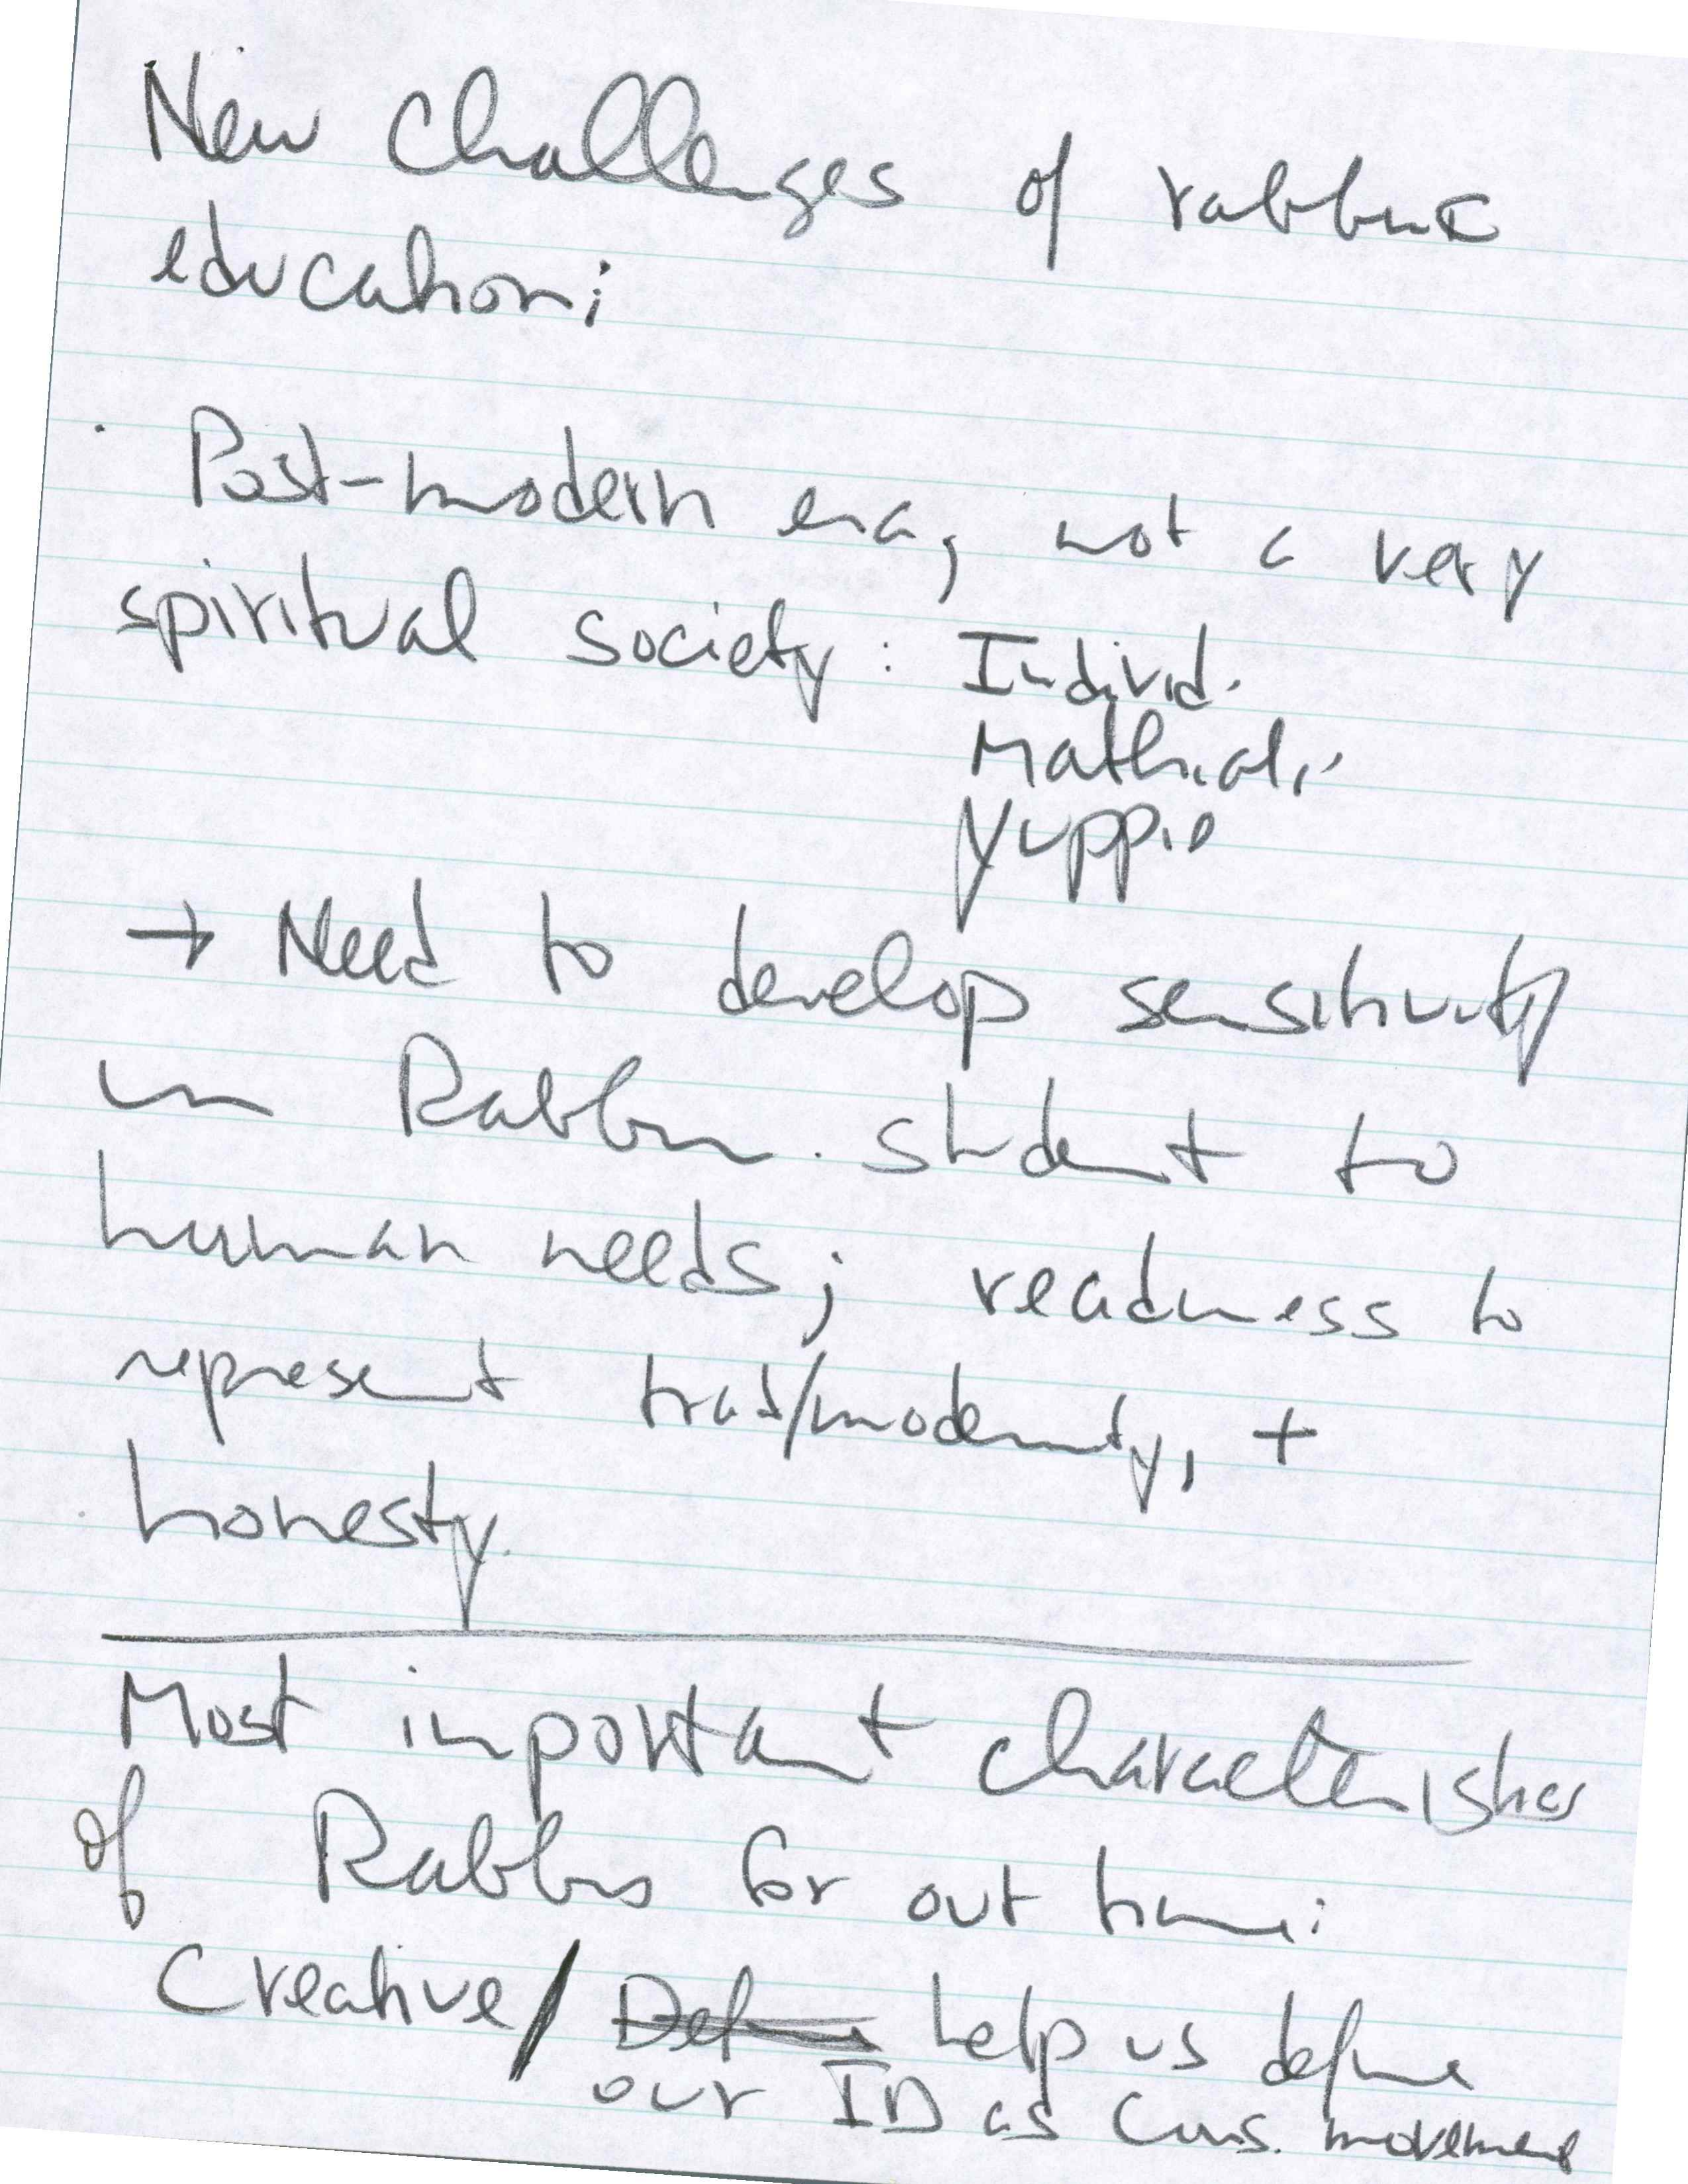 New Challenges of rabbinic
education:
· Post-modern era, not a very
spiritual society : Individ.
Yuppie
→ Need to develop sensitivity
in Rabbin. student to
human needs; readiness to
represent trad/modernity, +
honesty.
Most important characteristics
of Rabbis for out time:
Creative/ Define help us define
our ID as Cons. movement